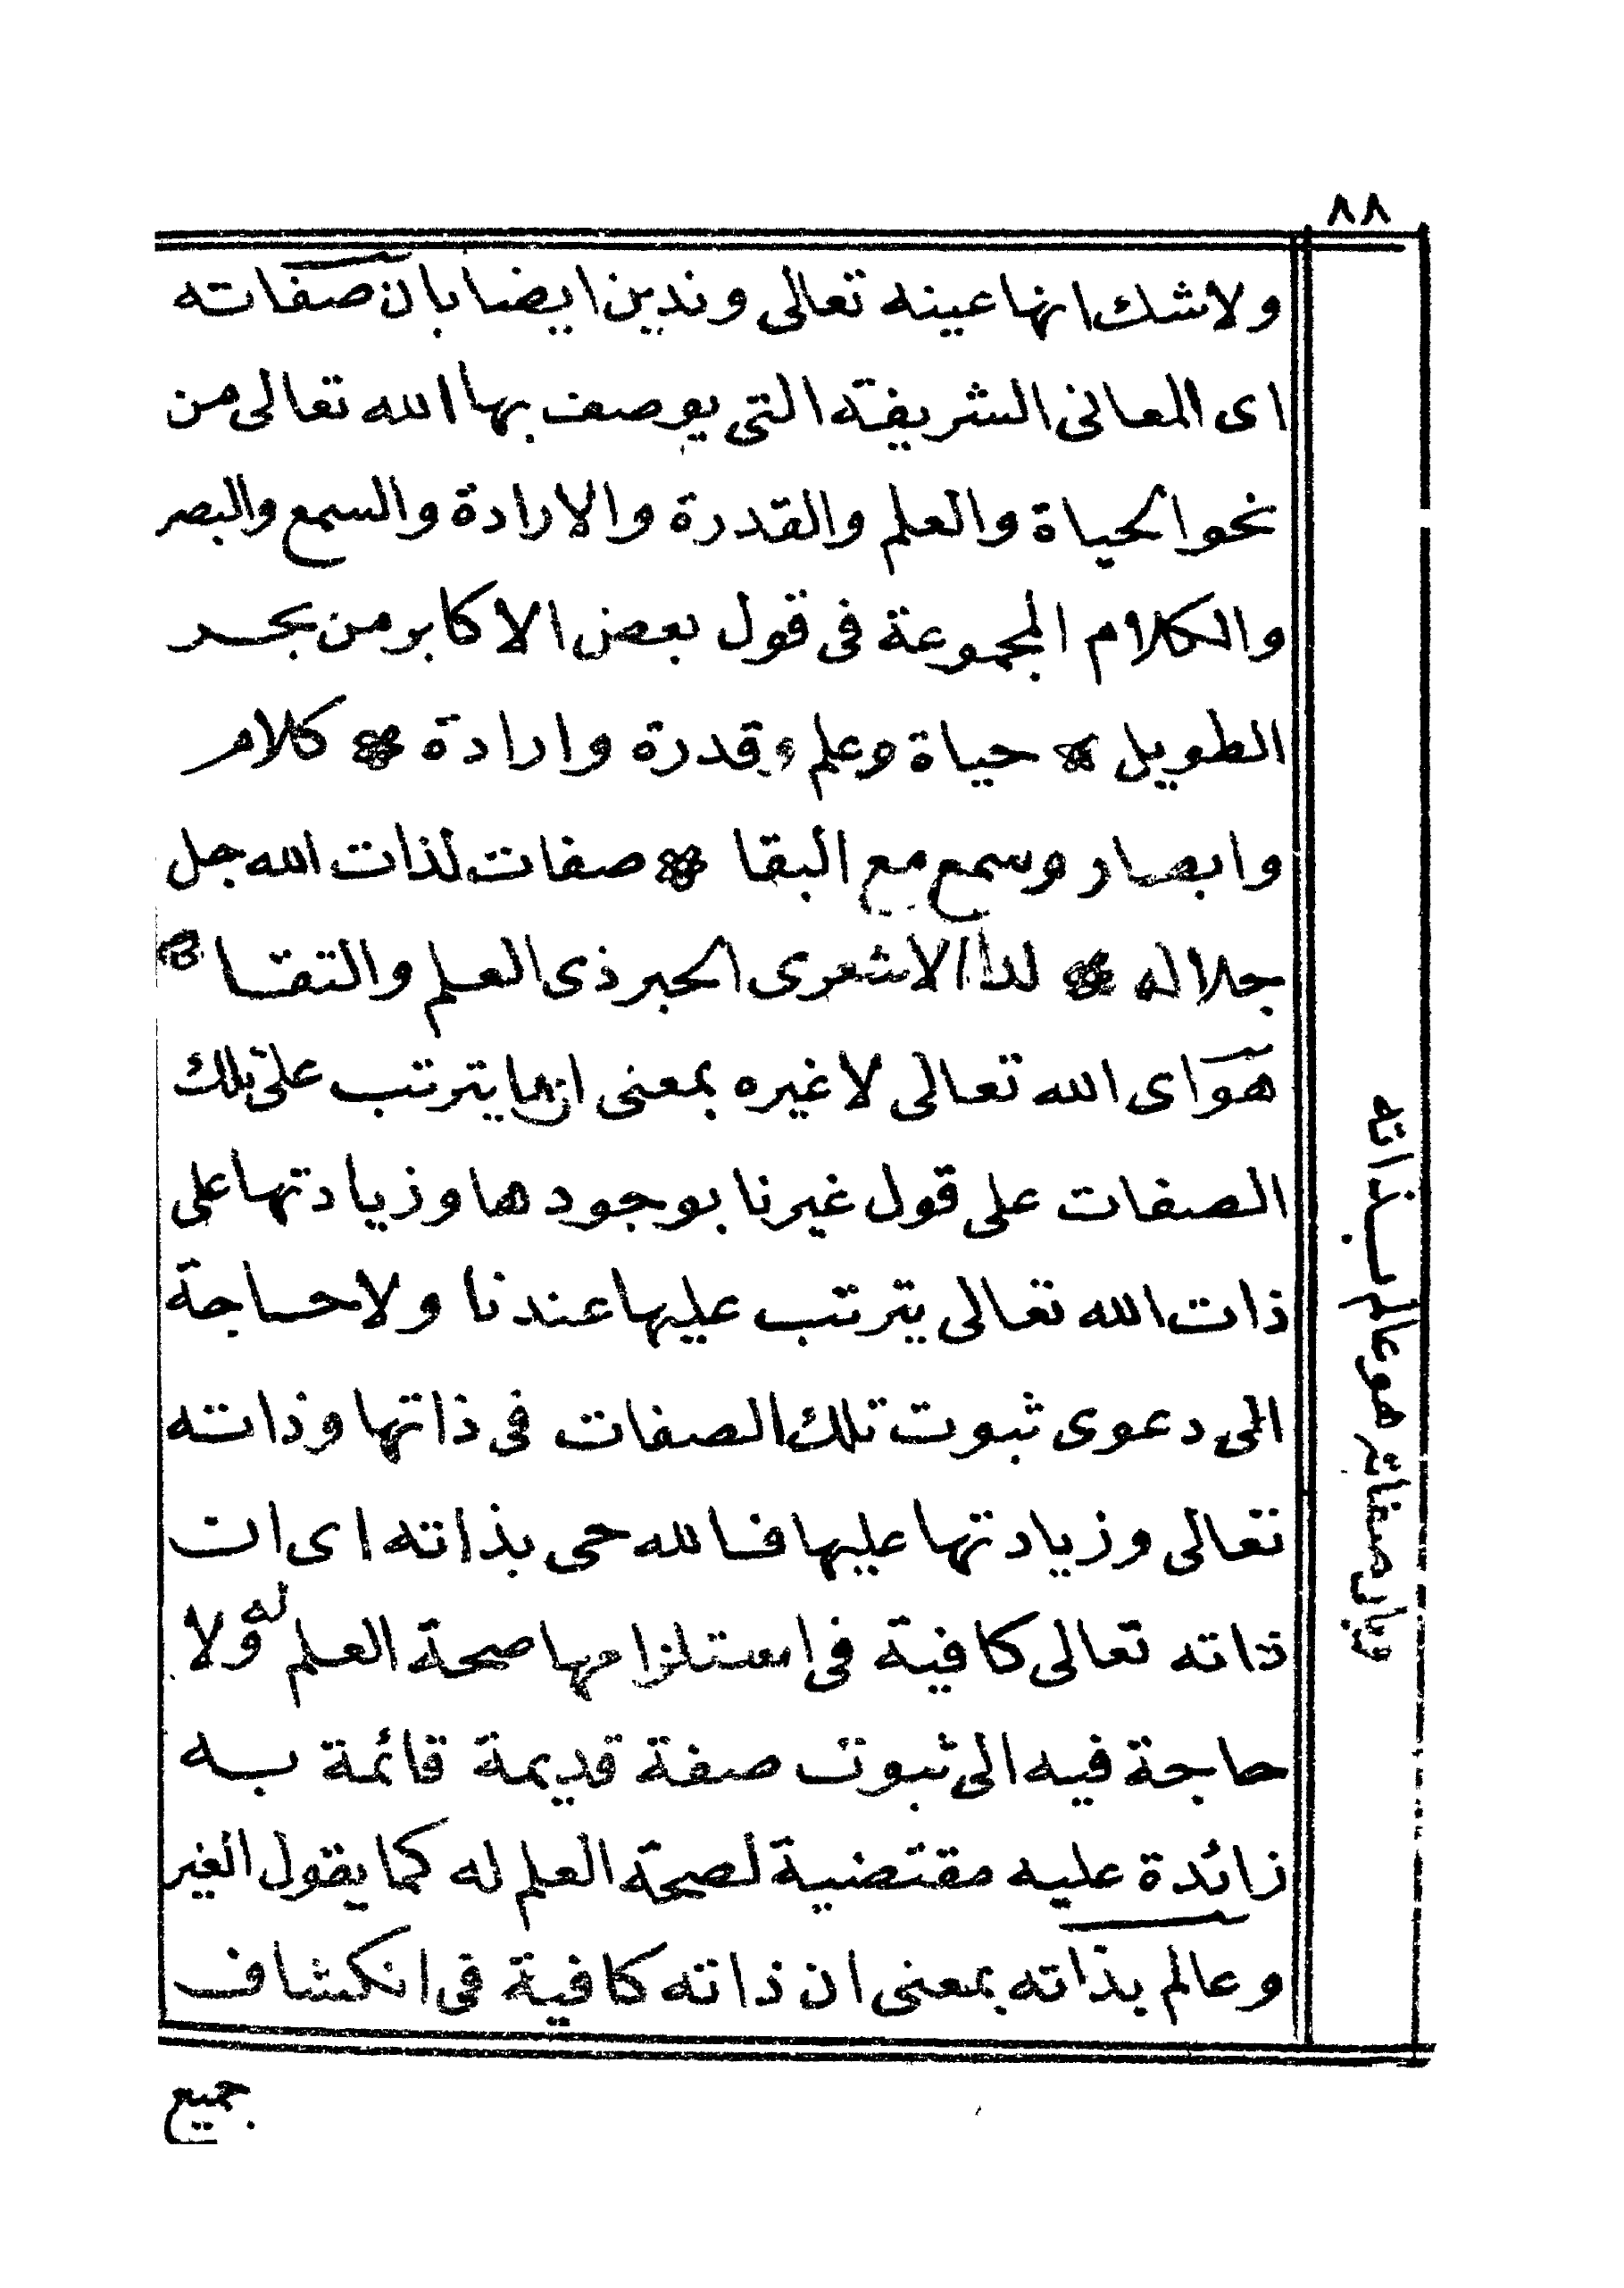 ٨٨
ولاشك انها عينه تعالى وندين ايضا بان صفاته
اى المعانى الشريفة التى يوصف بها الله تعالى من
نحو الحياة والعلم والقدرة والارادة والسمع والبصر
والكلام المجموعة فى قول بعض الاكابر من بحر
الطويل حياة وعلم وقدرة وارادة كلام
وابصار وسمع مع البقا صفات لذات الله جل
جلاله لدا الاشعرى الحبر ذى العلم والتقا
هو اى الله تعالى لا غيره بمعنى ان ما يترتب على تلك
الصفات على قول غيرنا بوجودها وزيادتها على
ذات الله تعالى يترتب عليها عندنا ولا حاجة
الى دعوى ثبوت تلك الصفات فى ذاتها وذاته
تعالى وزيادتها عليها فالله حى بذاته اى ان
ذاته تعالى كافية فى استلزامها صحة العلم له ولا
حاجة فيه الى ثبوت صفة قديمة قائمة به
زائدة عليه مقتضية لصحة العلم له كما يقول الغير
وعالم بذاته بمعنى ان ذاته كافية فى انكشاف
جميع
صفاته هو عالم بذاته